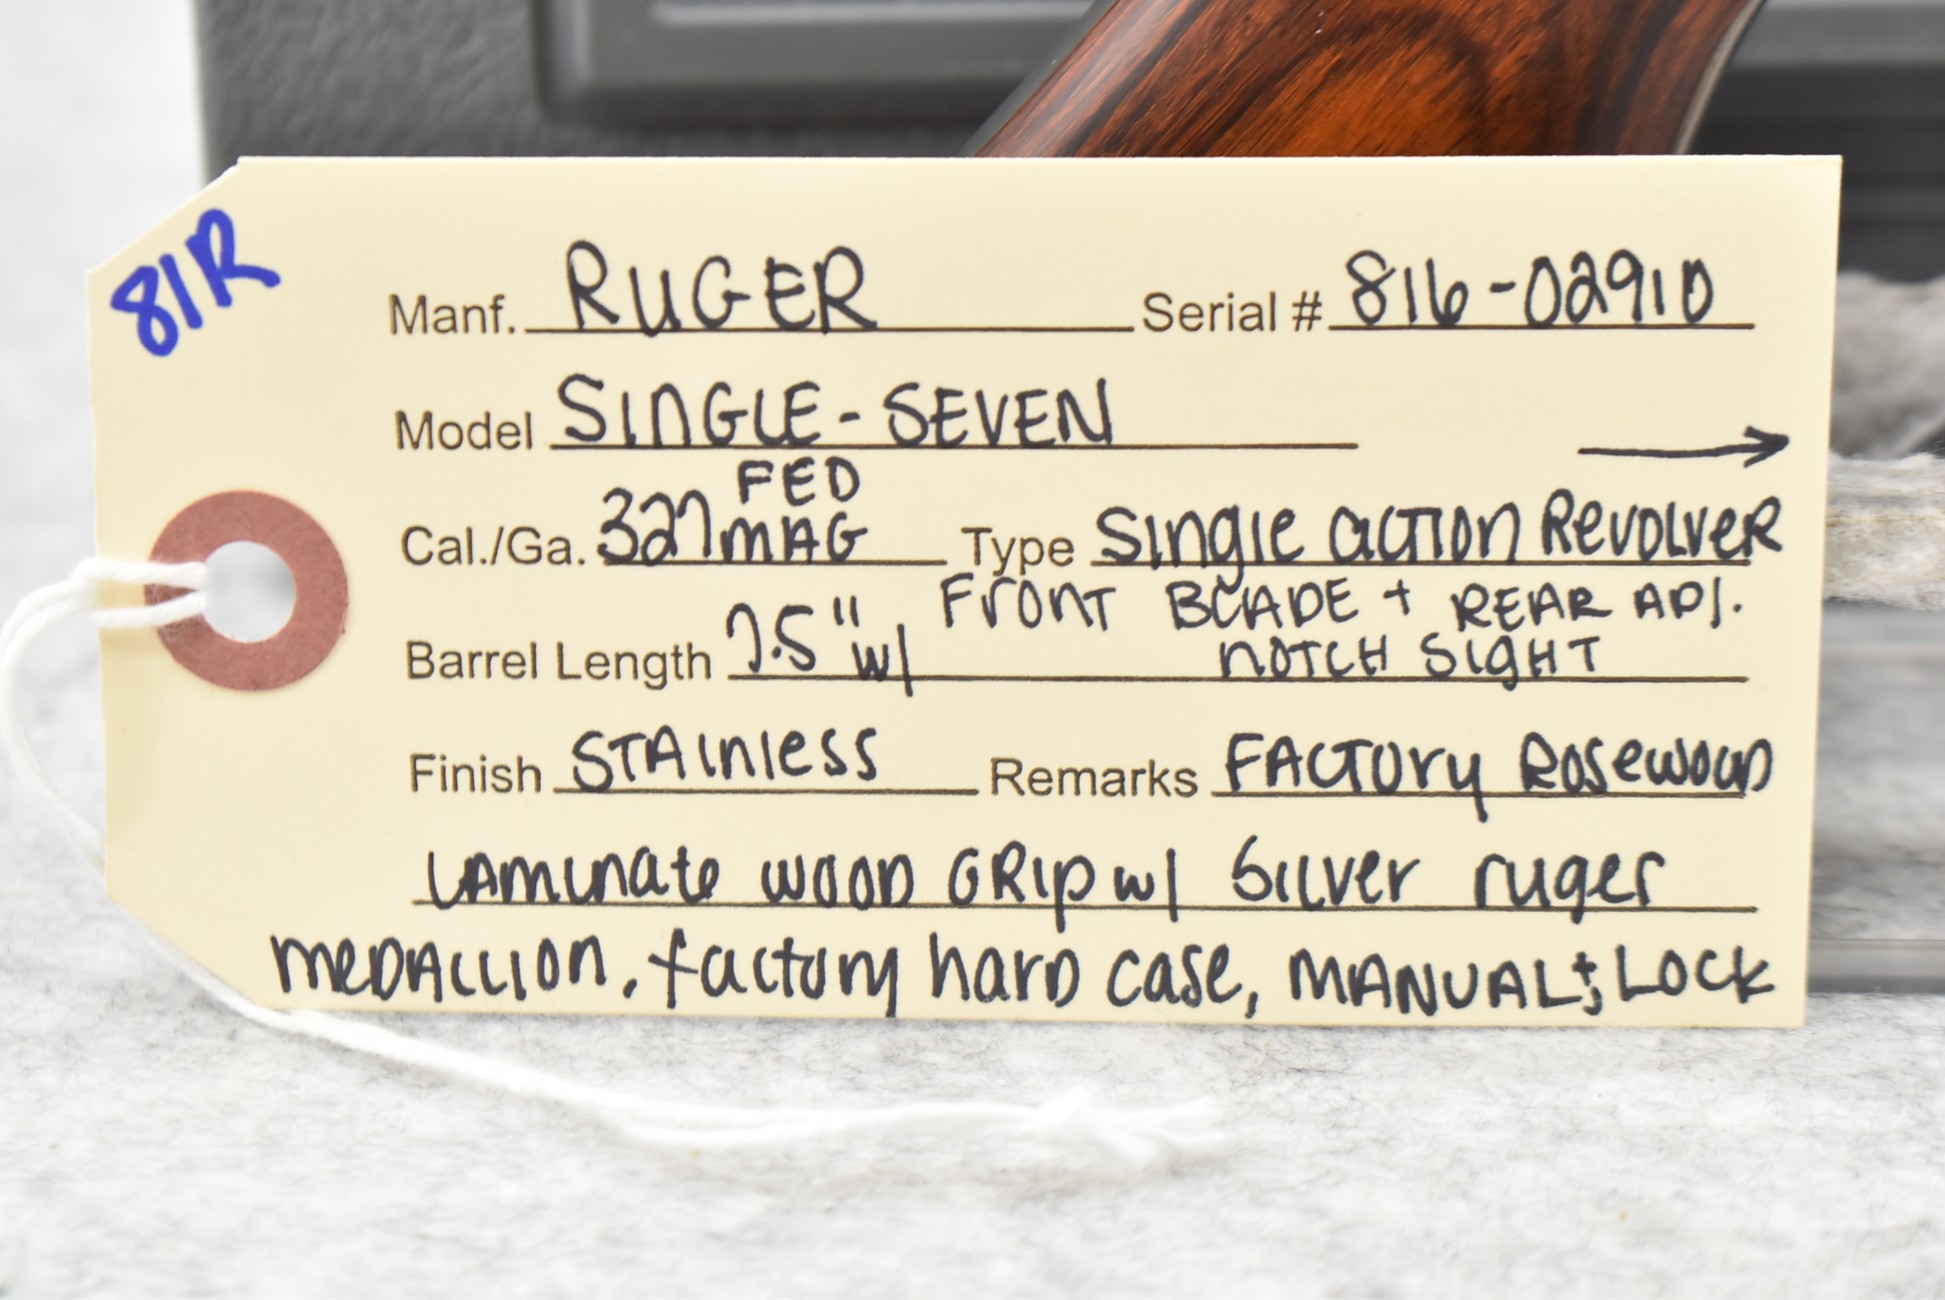 81R
Manf. RUGER Serial # 816-02910
Model SINGLE-SEVEN
FED
Cal./Ga. 327 MAG Type Single Action Revolver
Front BLADE + REAR ADJ.
Barrel Length 7.5" w/ NOTCH SIGHT
Finish STAINless Remarks FACTORY Rosewood
LAMinate WOOD GRIP w/ Silver ruger
MEDALLION, factory hard case, MANUAL + LOCK